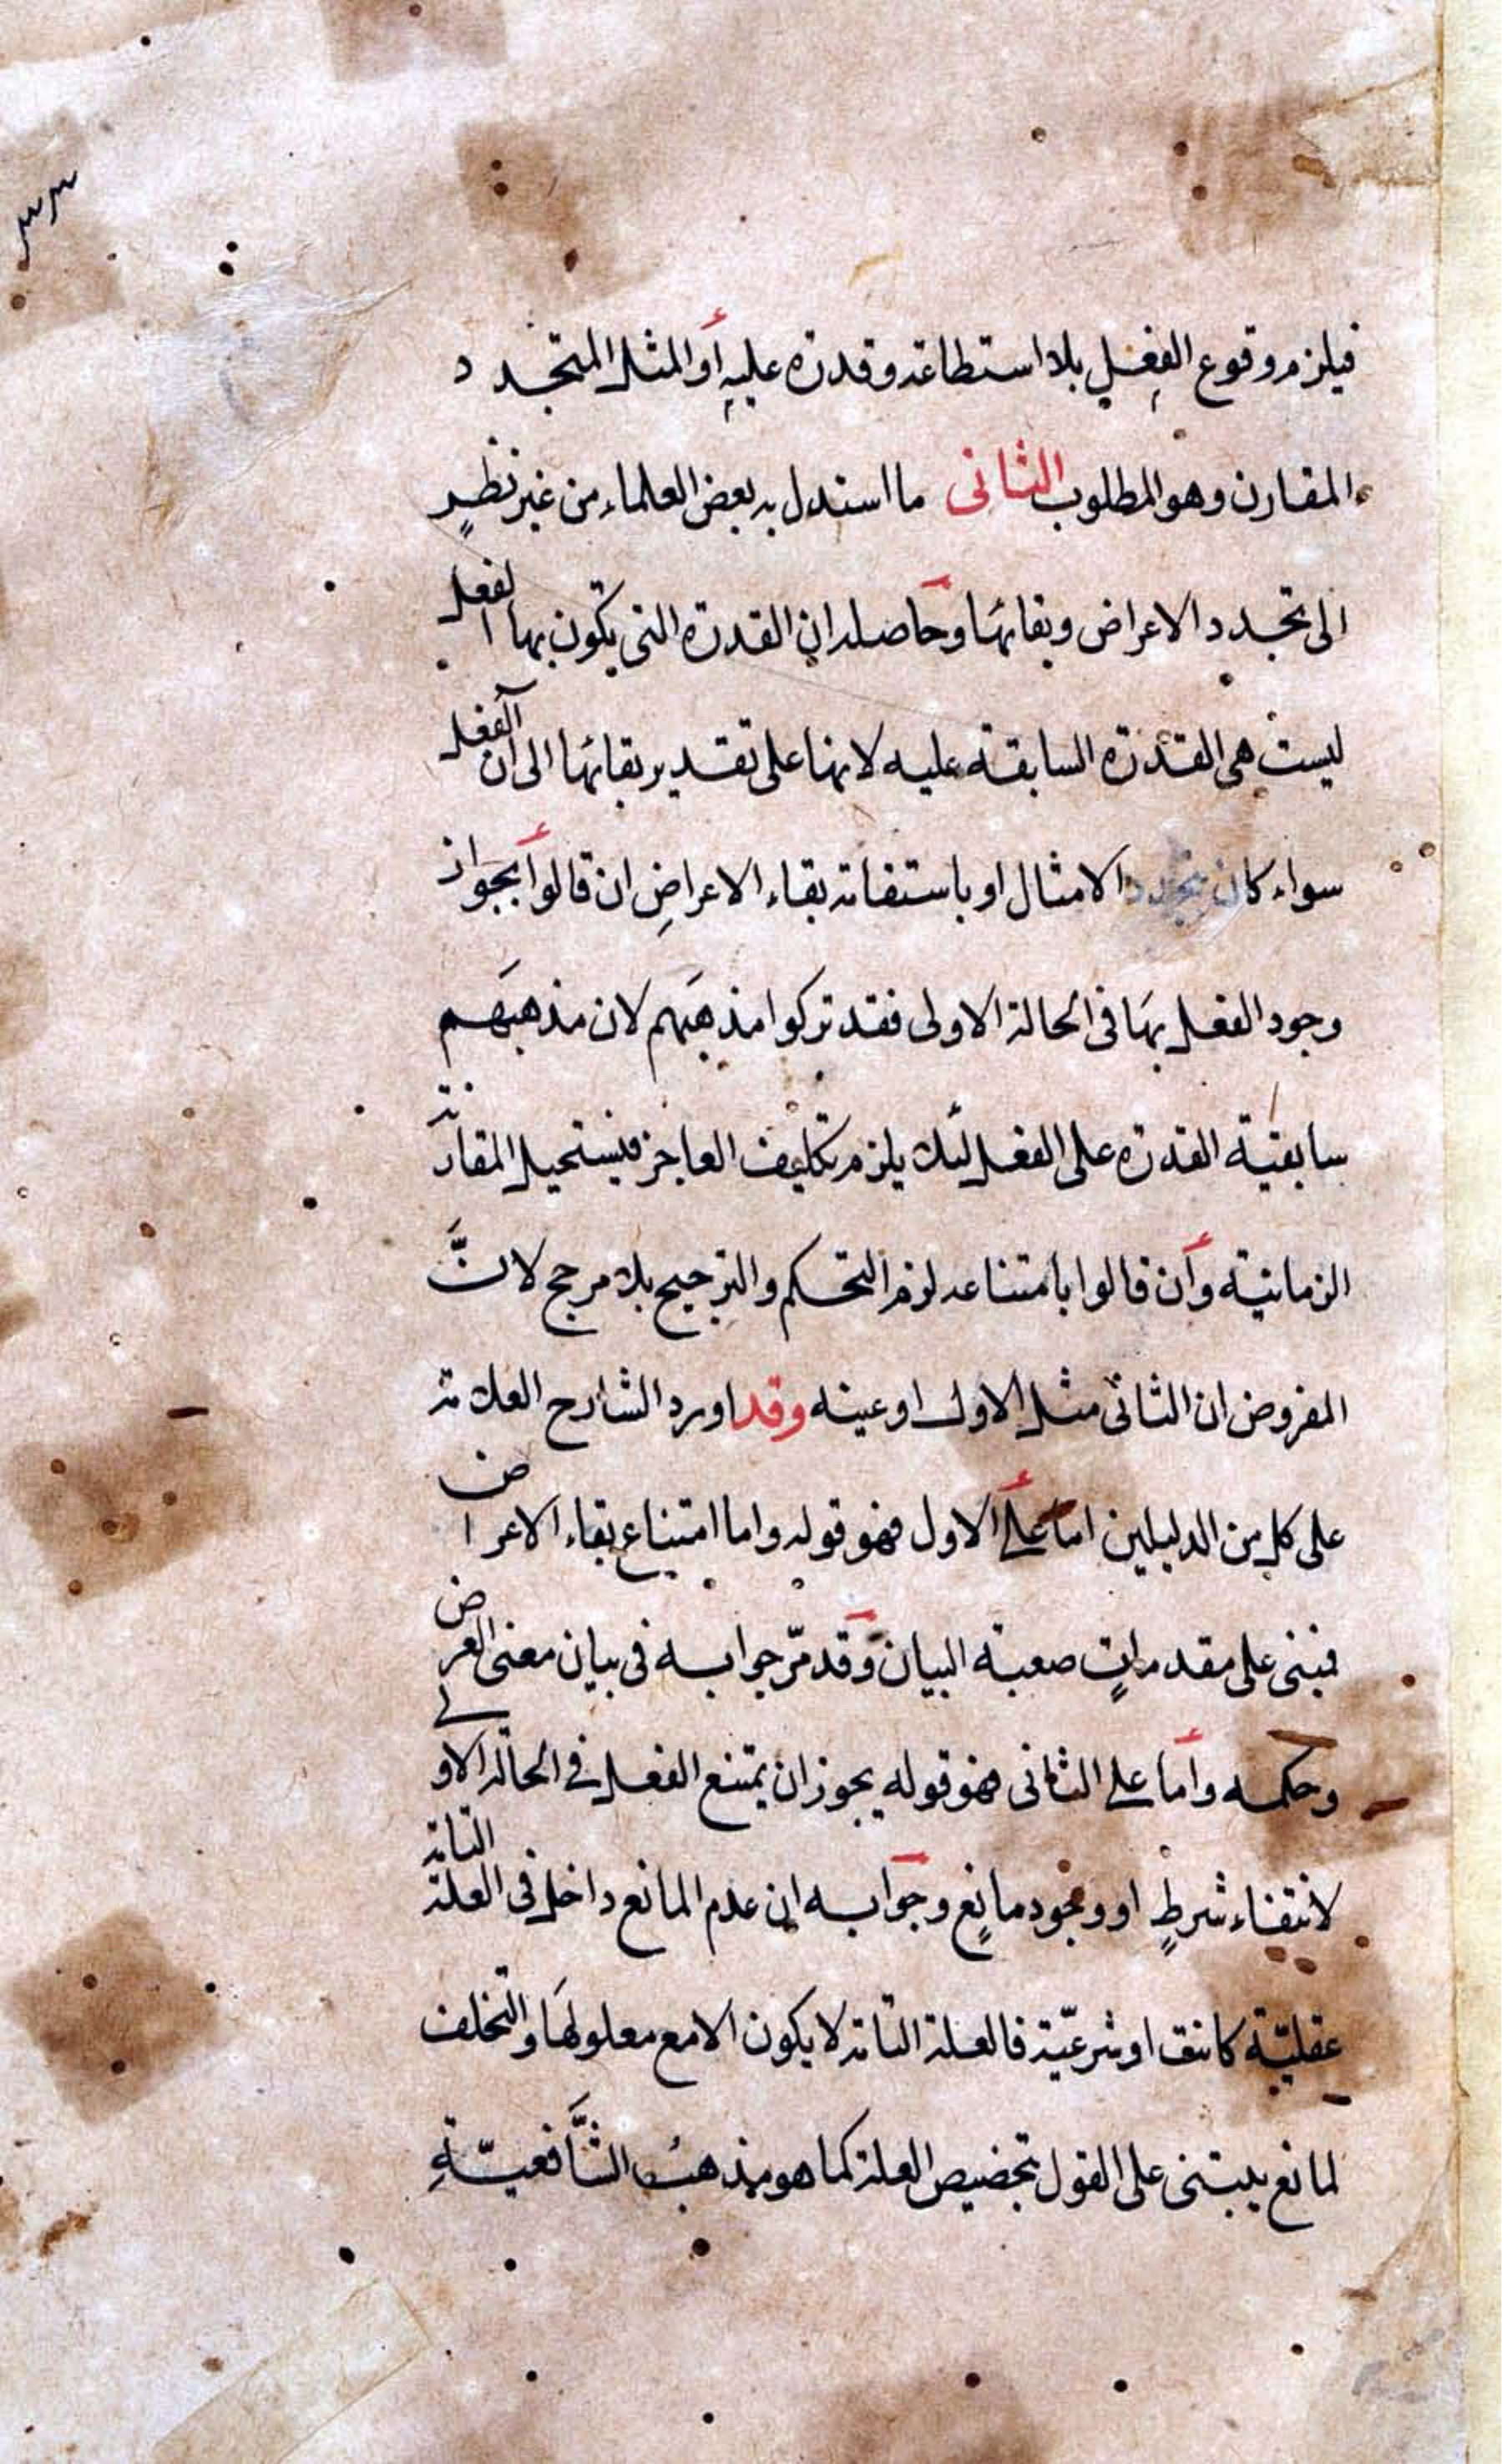 ٣٣
فيلزم وقوع الفعل بلا استطاعة وقدرة عليه أو المثل المتجدد
المقارن وهو المطلوب الثانى ما استدل به بعض العلماء من غير نظر
الى تجدد الاعراض وبقائها وحاصله ان القدرة التى يكون بها الفعل
ليست هى القدرة السابقة عليه لانها على تقدير بقائها الى ان الفعل
سواء كان بتجدد الامثال او باستقامة بقاء الاعراض ان قالوا بجواز
وجود الفعل بها فى الحالة الاولى فقد تركوا مذهبهم لان مذهبهم
سابقية القدرة على الفعل لئلا يلزم تكليف العاجز فيستحيل المقارنة
الزمانية وان قالوا بامتناعه لزم التحكم والترجيح بلا مرجح لانّ
المفروض ان الثانى مثل الاول او عينه وقد اورد الشارح العلامة
على كل من الدليلين اما على الاول فهو قوله واما امتناع بقاء الاعراض
فبنى على مقدمات صعبة البيان وقد مرّ جوابه فى بيان معنى العرض
وحكمه واما على الثانى فهو قوله يجوز ان يمتنع الفعل فى الحالة الاولى
لانتفاء شرط او وجود مانع وجوابه ان عدم المانع داخل فى العلة التامة
عقليّة كانت او شرعيّة فالعلة التامة لا يكون الا مع معلولها والتخلف
لمانع يبتنى على القول بتخصيص العلة كما هو مذهب الشّافعيّة